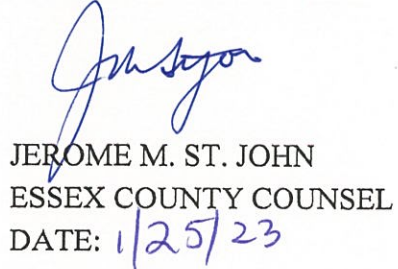 JEROME M. ST. JOHN
ESSEX COUNTY COUNSEL
DATE: 1/25/23